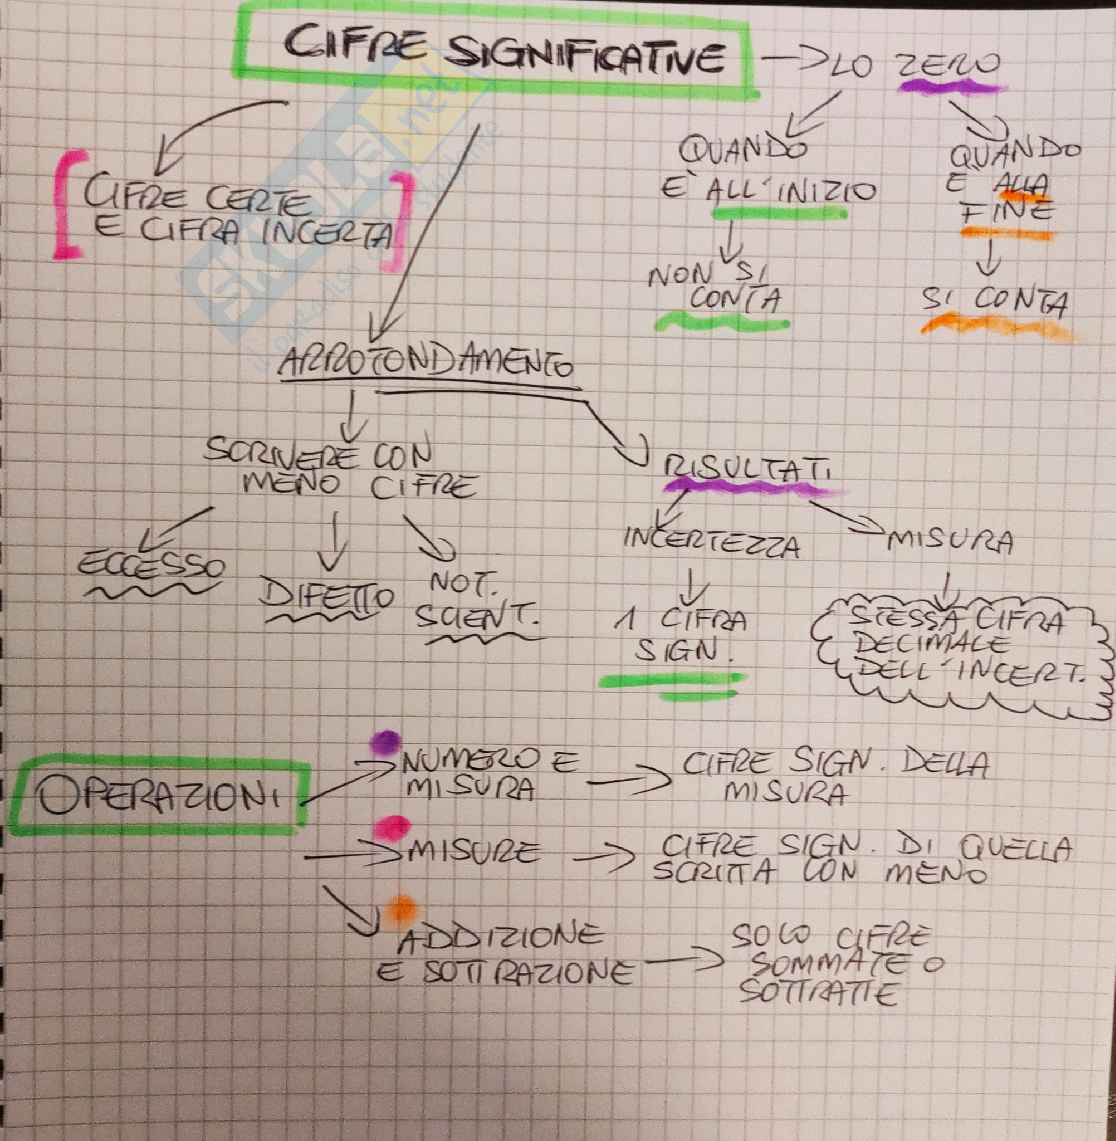 CIFRE SIGNIFICATIVE → LO ZERO
QUANDO
È ALL'INIZIO
NON SI
CONTA
QUANDO
È ALLA
FINE
SI CONTA
CIFRE CERTE
E CIFRA INCERTA
ARROTONDAMENTO
SCRIVERE CON
MENO CIFRE
ECCESSO
DIFETTO
NOT.
SCIENT.
RISULTATI
INCERTEZZA
1 CIFRA
SIGN.
MISURA
STESSA CIFRA
DECIMALE
DELL'INCERT.
OPERAZIONI
NUMERO E
MISURA
CIFRE SIGN. DELLA
MISURA
MISURE
CIFRE SIGN. DI QUELLA
SCRITTA CON MENO
ADDIZIONE
E SOTTRAZIONE
SOLO CIFRE
SOMMATE O
SOTTRATTE
SKUOLA.net